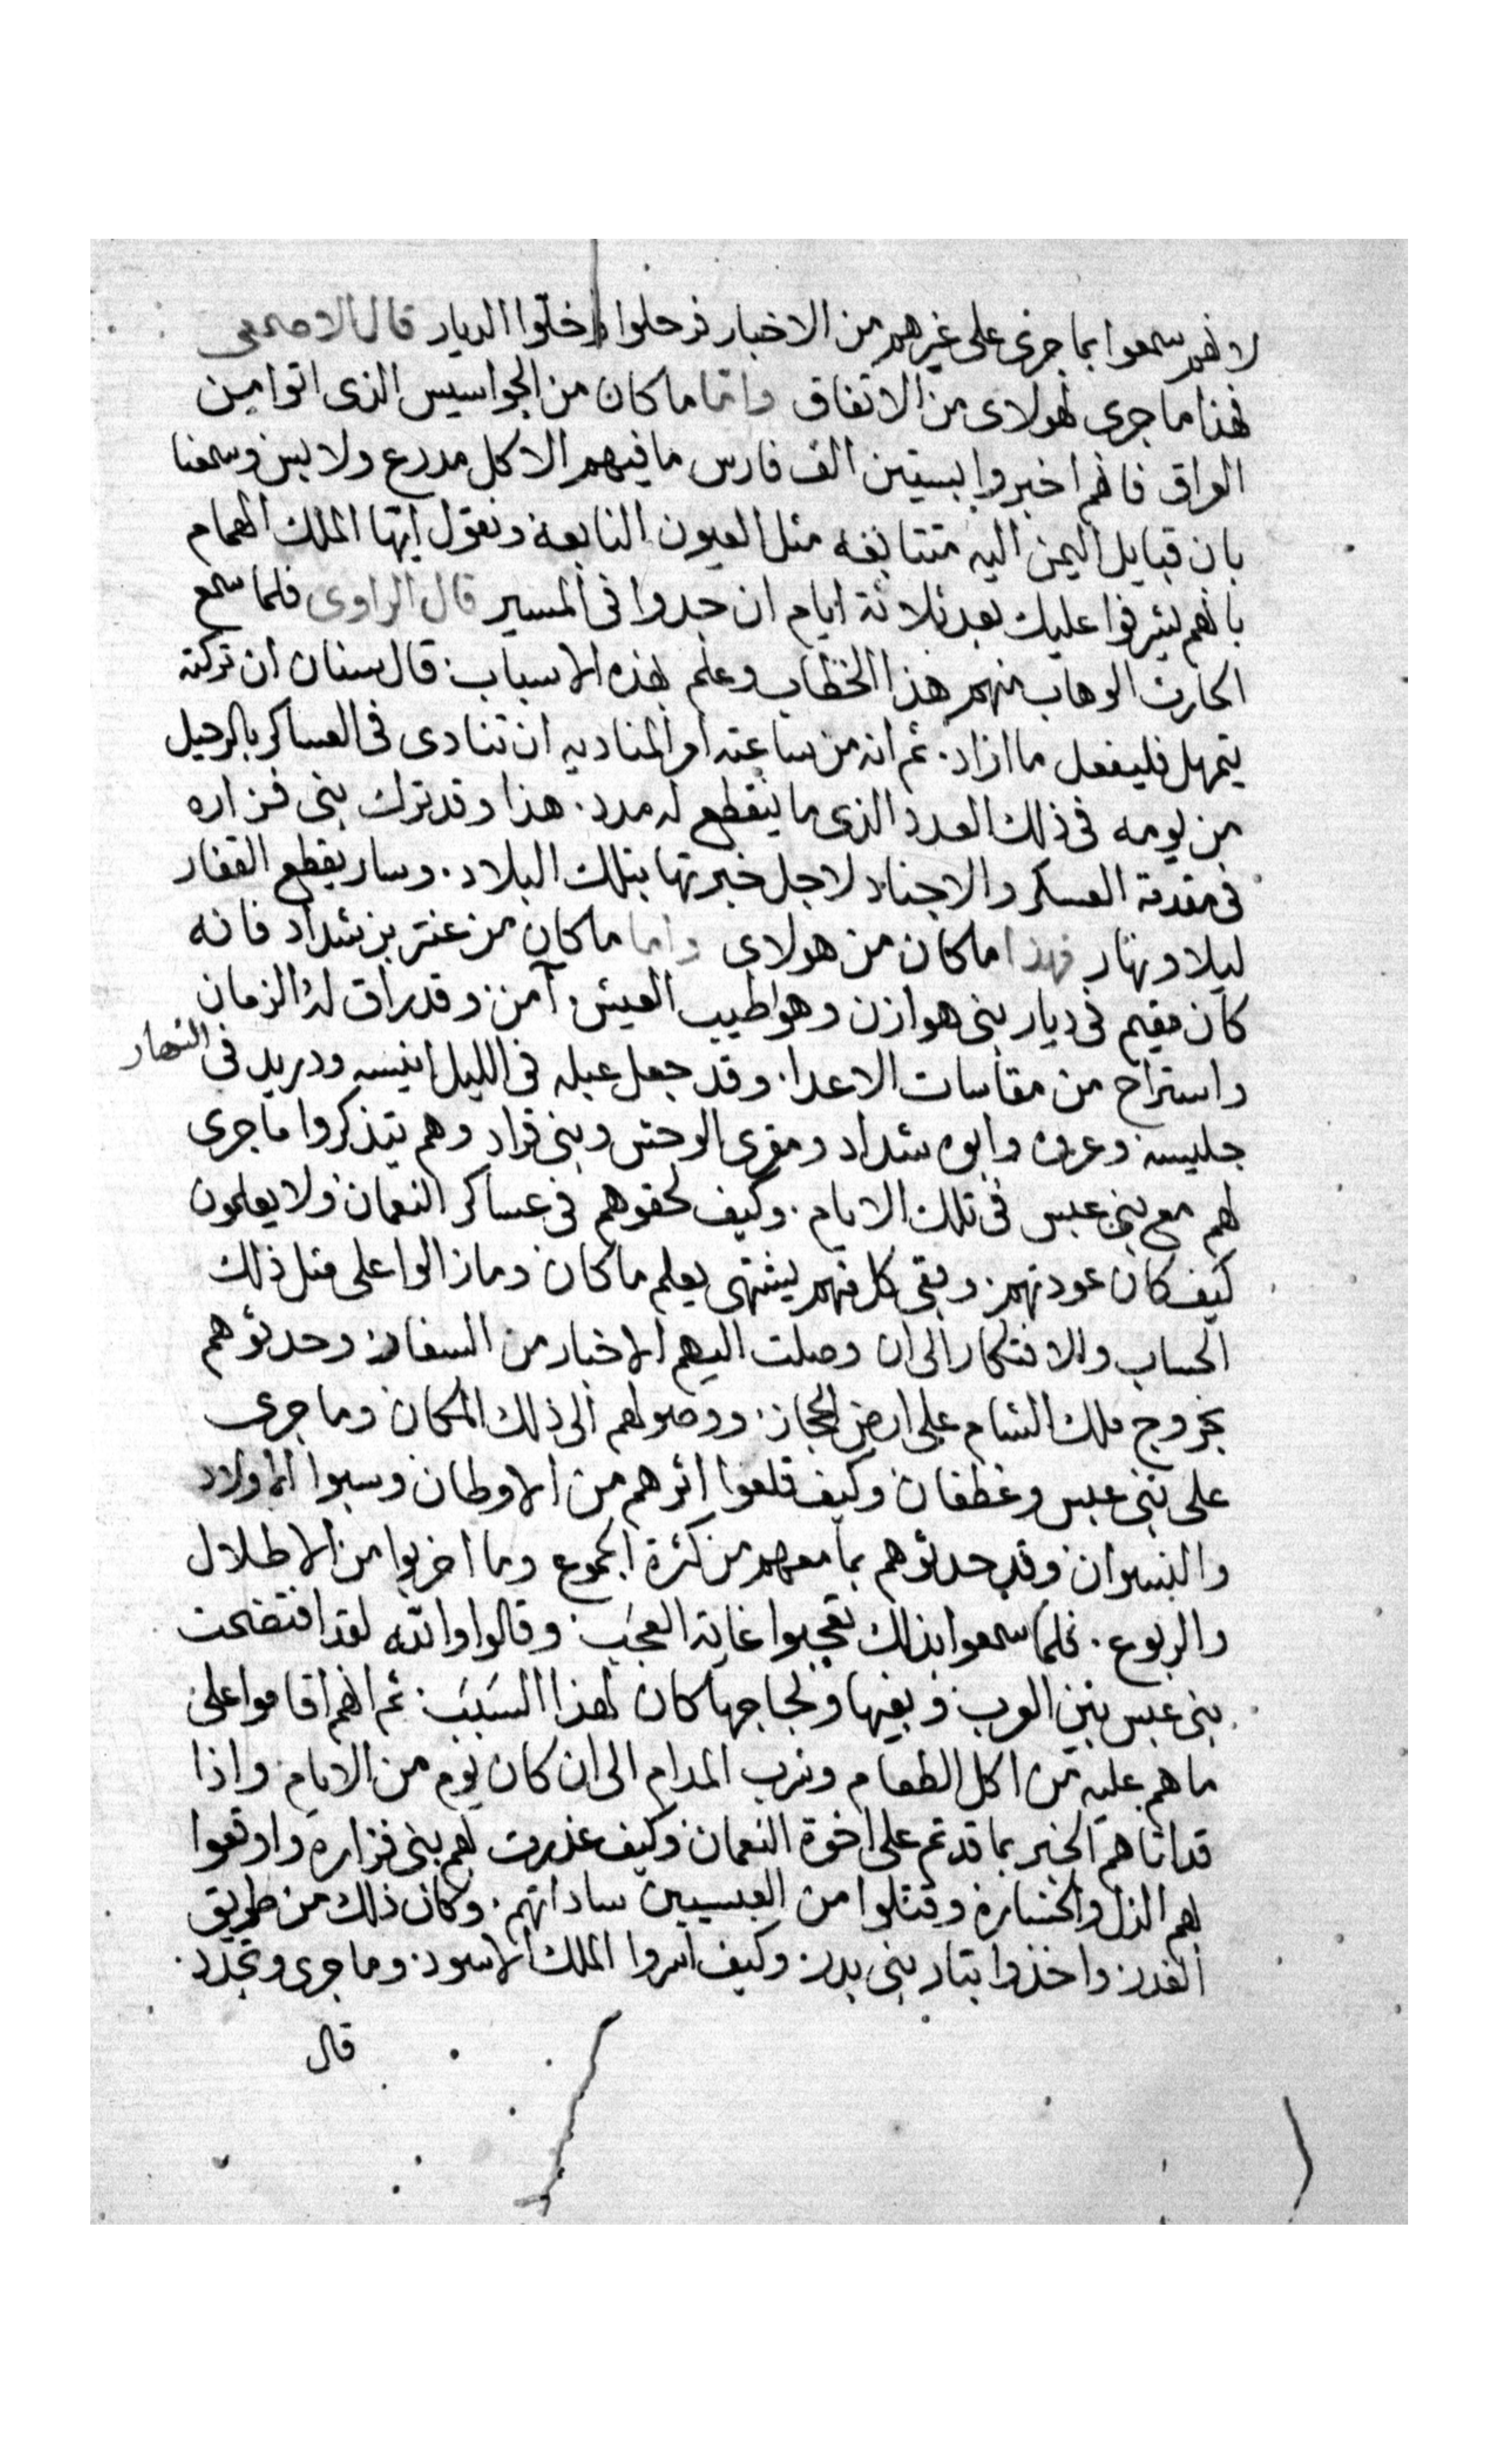 لانهم سمعوا بما جرى على غيرهم من الاخبار فرحلوا واخلوا الديار قال الاصمعى
فهذا ما جرى لهولاى من الاتفاق واما ما كان من الجواسيس الذى اتوا من
العراق فانهم اخبروا بستين الف فارس ما فيهم الا كل مدرع ولابس وسمعنا
بان قبايل اليمن اليه متتابعه مثل العيون النابعة ونقول ايها الملك الهمام
بانهم يشرفوا عليك بعد ثلاثة ايام ان جدوا فى المسير قال الراوى فلما سمع
الحارث الوهاب منهم هذا الخطاب وعلم بهذه الاسباب قال سنان ان تركته
يتمهل فليفعل ما اراد. ثم انه من ساعته امر المناديه ان تنادى فى العساكر بالرحيل
من يومه فى ذلك العدد الذى ما ينقطع له مدد. هذا وقد ترك بنى فزاره
فى مقدمة العسكر والاجناد لاجل خبرتها بتلك البلاد. وسار يقطع القفار
ليلا ونهار فهذا ما كان من هولاى واما ما كان من عنتر بن شداد فانه
كان مقيم فى ديار بنى هوازن وهو اطيب العيش آمن وقد راق له الزمان
واستراح من مقاسات الاعدا. وقد جعل عبله فى الليل انيسه ودريد فى النهار
جليسه وعروه وابوه شداد ومقرى الوحش وبنى قراد وهم يتذكروا ما جرى
لهم مع بنى عبس فى تلك الايام. وكيف لحقوهم فى عساكر النعمان ولا يعلمون
كيف كان عودتهم. وبقى كل منهم يشتهى يعلم ما كان وما زالوا على مثل ذلك
الحساب والافتكار الى ان وصلت اليهم الاخبار من السفار وحدثوهم
بخروج ملك الشام على ارض الحجاز. ووصولهم الى ذلك المكان وما جرى
على بنى عبس وغطفان وكيف قلعوا اثرهم من الاوطان وسبوا الاولاد
والنسوان وقد حدثوهم بما معهم من كثرة الجموع وما اخربوا من الاطلال
والربوع. فلما سمعوا بذلك تعجبوا غاية العجب وقالوا والله لقد افتضحت
بنى عبس بين العرب وبغيها ولجاجها كان لهذا السبب ثم انهم اقاموا على
ما هم عليه من اكل الطعام وشرب المدام الى ان كان يوم من الايام واذا
قد اتاهم الخبر بما قد تم على اخوة النعمان وكيف غدرت لهم بنى فزاره واوقعوا
لهم الذل والخساره وقتلوا من العبسيين ساداتهم. وكان ذلك من طريق
الغدر واخذوا بثار بنى بدر. وكيف اسروا الملك الاسود. وما جرى وتجدد.
قال